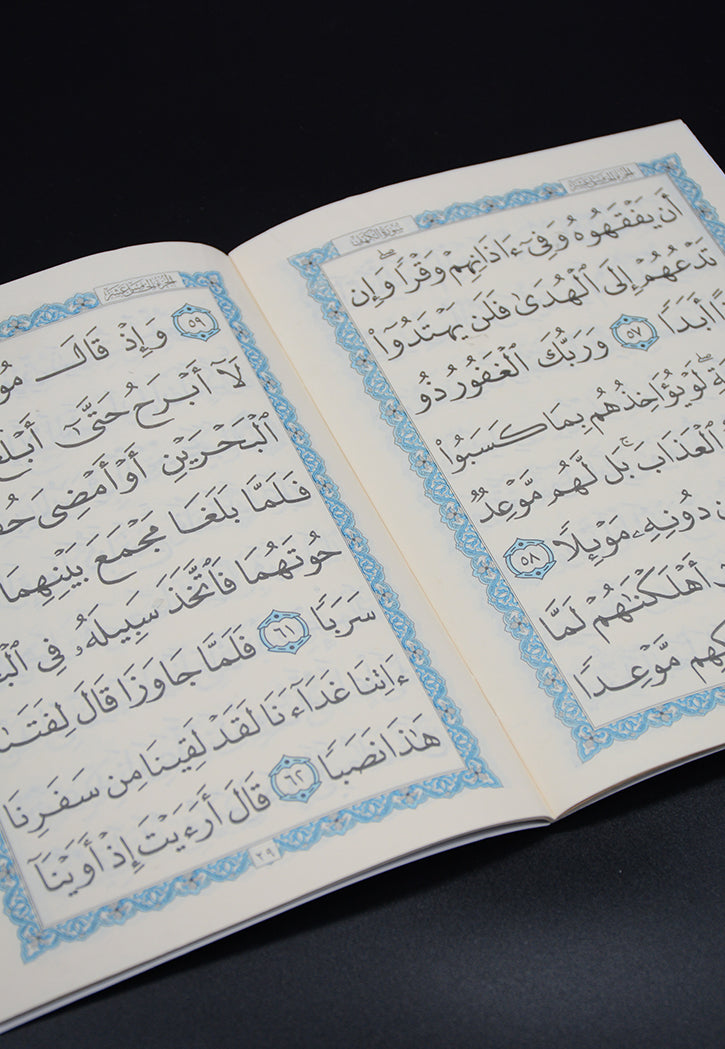 الجزء الخامس عشر
سورة الكهف
أَن يَفْقَهُوهُ وَفِىٓ ءَاذَانِهِمْ وَقْرًا ۖ وَإِن
تَدْعُهُمْ إِلَى ٱلْهُدَىٰ فَلَن يَهْتَدُوٓا۟
أَبَدًا ٥٧ وَرَبُّكَ ٱلْغَفُورُ ذُو
لَوْ يُؤَاخِذُهُم بِمَا كَسَبُوا۟
ٱلْعَذَابَ ۚ بَل لَّهُم مَّوْعِدٌ
دُونِهِۦ مَوْئِلًا ٥٨
أَهْلَكْنَٰهُمْ لَمَّا
مَّوْعِدًا
الجزء الخامس عشر
٥٩ وَإِذْ قَالَ
لَآ أَبْرَحُ حَتَّىٰٓ
ٱلْبَحْرَيْنِ أَوْ أَمْضِىَ
فَلَمَّا بَلَغَا مَجْمَعَ بَيْنِهِمَا
حُوتَهُمَا فَٱتَّخَذَ سَبِيلَهُۥ فِى
سَرَبًا ٦١ فَلَمَّا جَاوَزَا قَالَ
ءَاتِنَا غَدَآءَنَا لَقَدْ لَقِينَا مِن سَفَرِنَا
هَٰذَا نَصَبًا ٦٢ قَالَ أَرَءَيْتَ إِذْ أَوَيْنَآ
٢٩